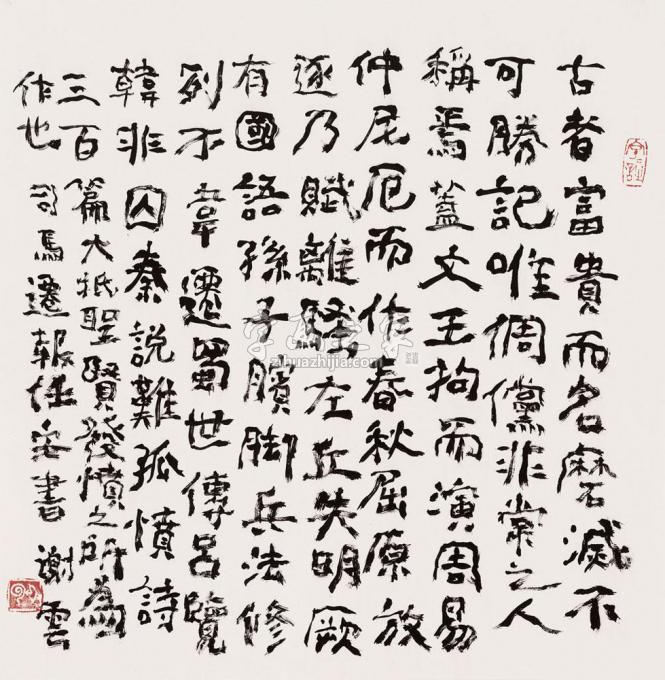 古者富貴而名磨滅不
可勝記唯倜儻非常之人
稱焉蓋文王拘而演周易
仲尼厄而作春秋屈原放
逐乃賦離騷左丘失明厥
有國語孫子臏腳兵法修
列不韋遷蜀世傳呂覽
韓非囚秦說難孤憤詩
三百篇大抵聖賢發憤之所為
作也 司馬遷報任安書 謝雲
字画之家
zihuazhijia.com